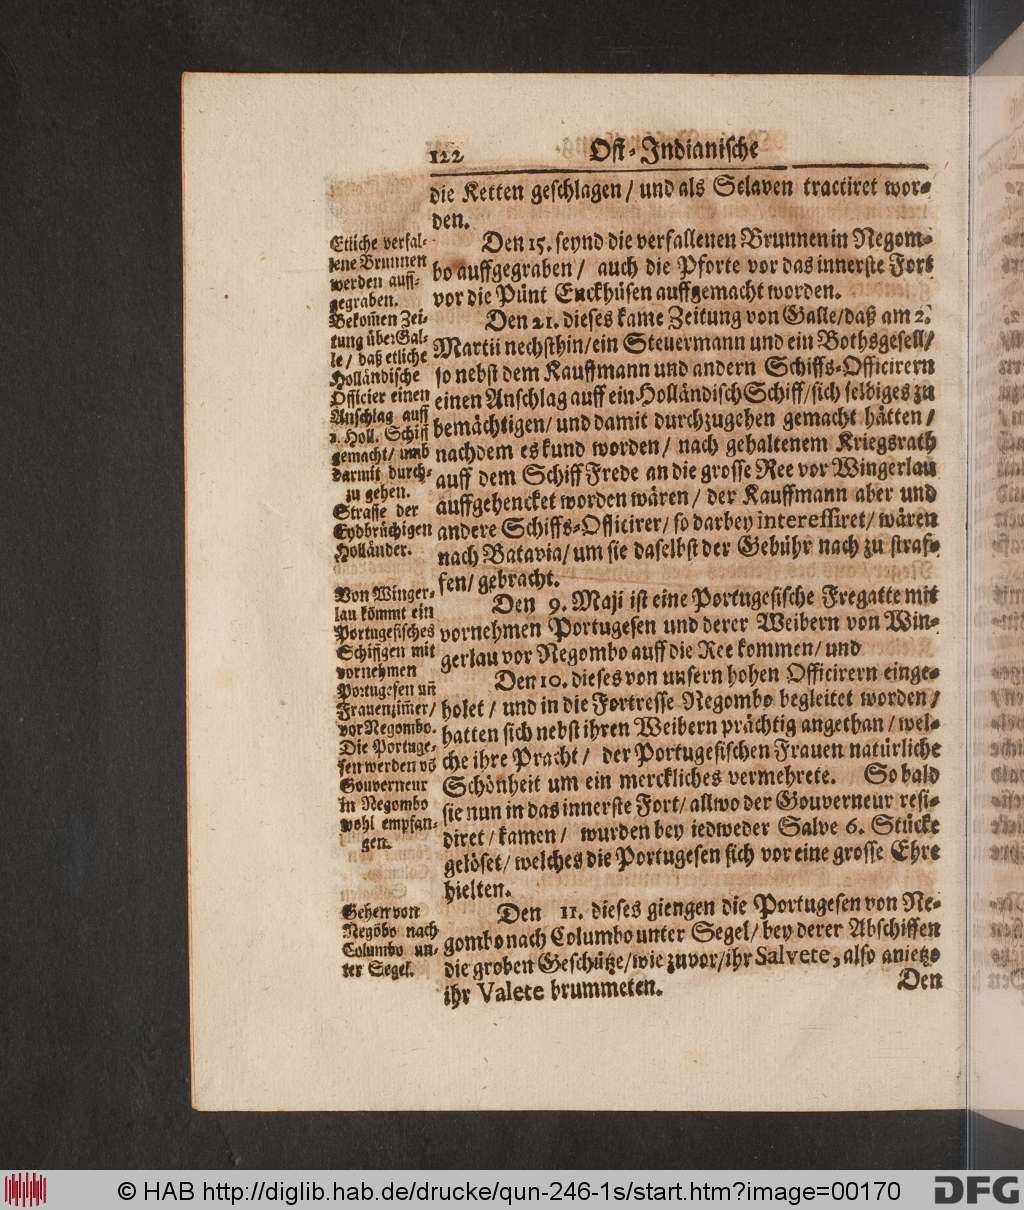 122 Ost-Indianische
die Ketten geschlagen / und als Sclaven tractiret wor-
den.
Den 15. seynd die verfallenen Brunnen in Negom-
bo auffgegraben / auch die Pforte vor das innerste Fort
vor die Pünt Enckhüsen auffgemacht worden.
Den 21. dieses kame Zeitung von Galle/daß am 2.
Martii nechsthin/ein Steuermann und ein Bothsgesell/
so nebst dem Kauffmann und andern Schiffs-Officirern
einen Anschlag auff ein Holländisch Schiff/sich selbiges zu
bemächtigen/und damit durchzugehen gemacht hätten /
nachdem es kund worden / nach gehaltenem Kriegsrath
auff dem Schiff Frede an die grosse Ree vor Wingerlau
auffgehencket worden wären / der Kauffmann aber und
andere Schiffs-Officirer/ so darbey interessiret/ wären
nach Batavia/ um sie daselbst der Gebühr nach zu straf-
fen/ gebracht.
Den 9. Maji ist eine Portugesische Fregatte mit
vornehmen Portugesen und derer Weibern von Win-
gerlau vor Negombo auff die Ree kommen/ und
Den 10. dieses von unsern hohen Officirern einge-
holet / und in die Fortresse Negombo begleitet worden /
hatten sich nebst ihren Weibern prächtig angethan / wel-
che ihre Pracht / der Portugesischen Frauen natürliche
Schönheit um ein merckliches vermehrete. So bald
sie nun in das innerste Fort/ allwo der Gouverneur resi-
diret / kamen / wurden bey iedweder Salve 6. Stücke
gelöset/ welches die Portugesen sich vor eine grosse Ehre
hielten.
Den 11. dieses giengen die Portugesen von Ne-
gombo nach Columbo unter Segel/ bey derer Abschiffen
die groben Geschütze/wie zuvor/ihr Salvete, also anietzo
ihr Valete brummeten.
Den
Etliche verfal-
lene Brunnen
werden auff-
gegraben.
Bekom̃en Zei-
tung über Gal-
le / daß etliche
Holländische
Officier einen
Anschlag auff
1. Holl. Schiff
gemacht/ umb
darmit durch-
zu gehen.
Straffe der
Eydbrüchigen
Holländer.
Von Winger-
lau kömmt ein
Portugesisches
Schiffgen mit
vornehmen
Portugesen un̄
Frauenzim̃er/
vor Negombo.
Die Portuge-
sen werden vō
Gouverneur
in Negombo
wohl empfan-
gen.
Gehen von
Negōbo nach
Columbo un-
ter Segel.
© HAB http://diglib.hab.de/drucke/qun-246-1s/start.htm?image=00170
DFG